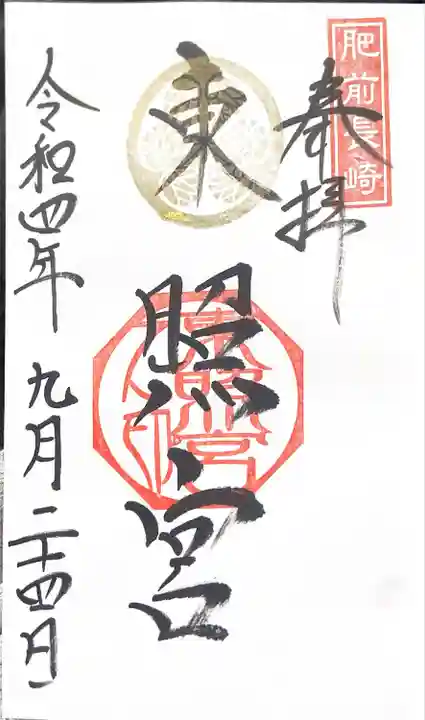 肥前長崎
奉拝
東照宮
東照宮
令和四年 九月二十四日